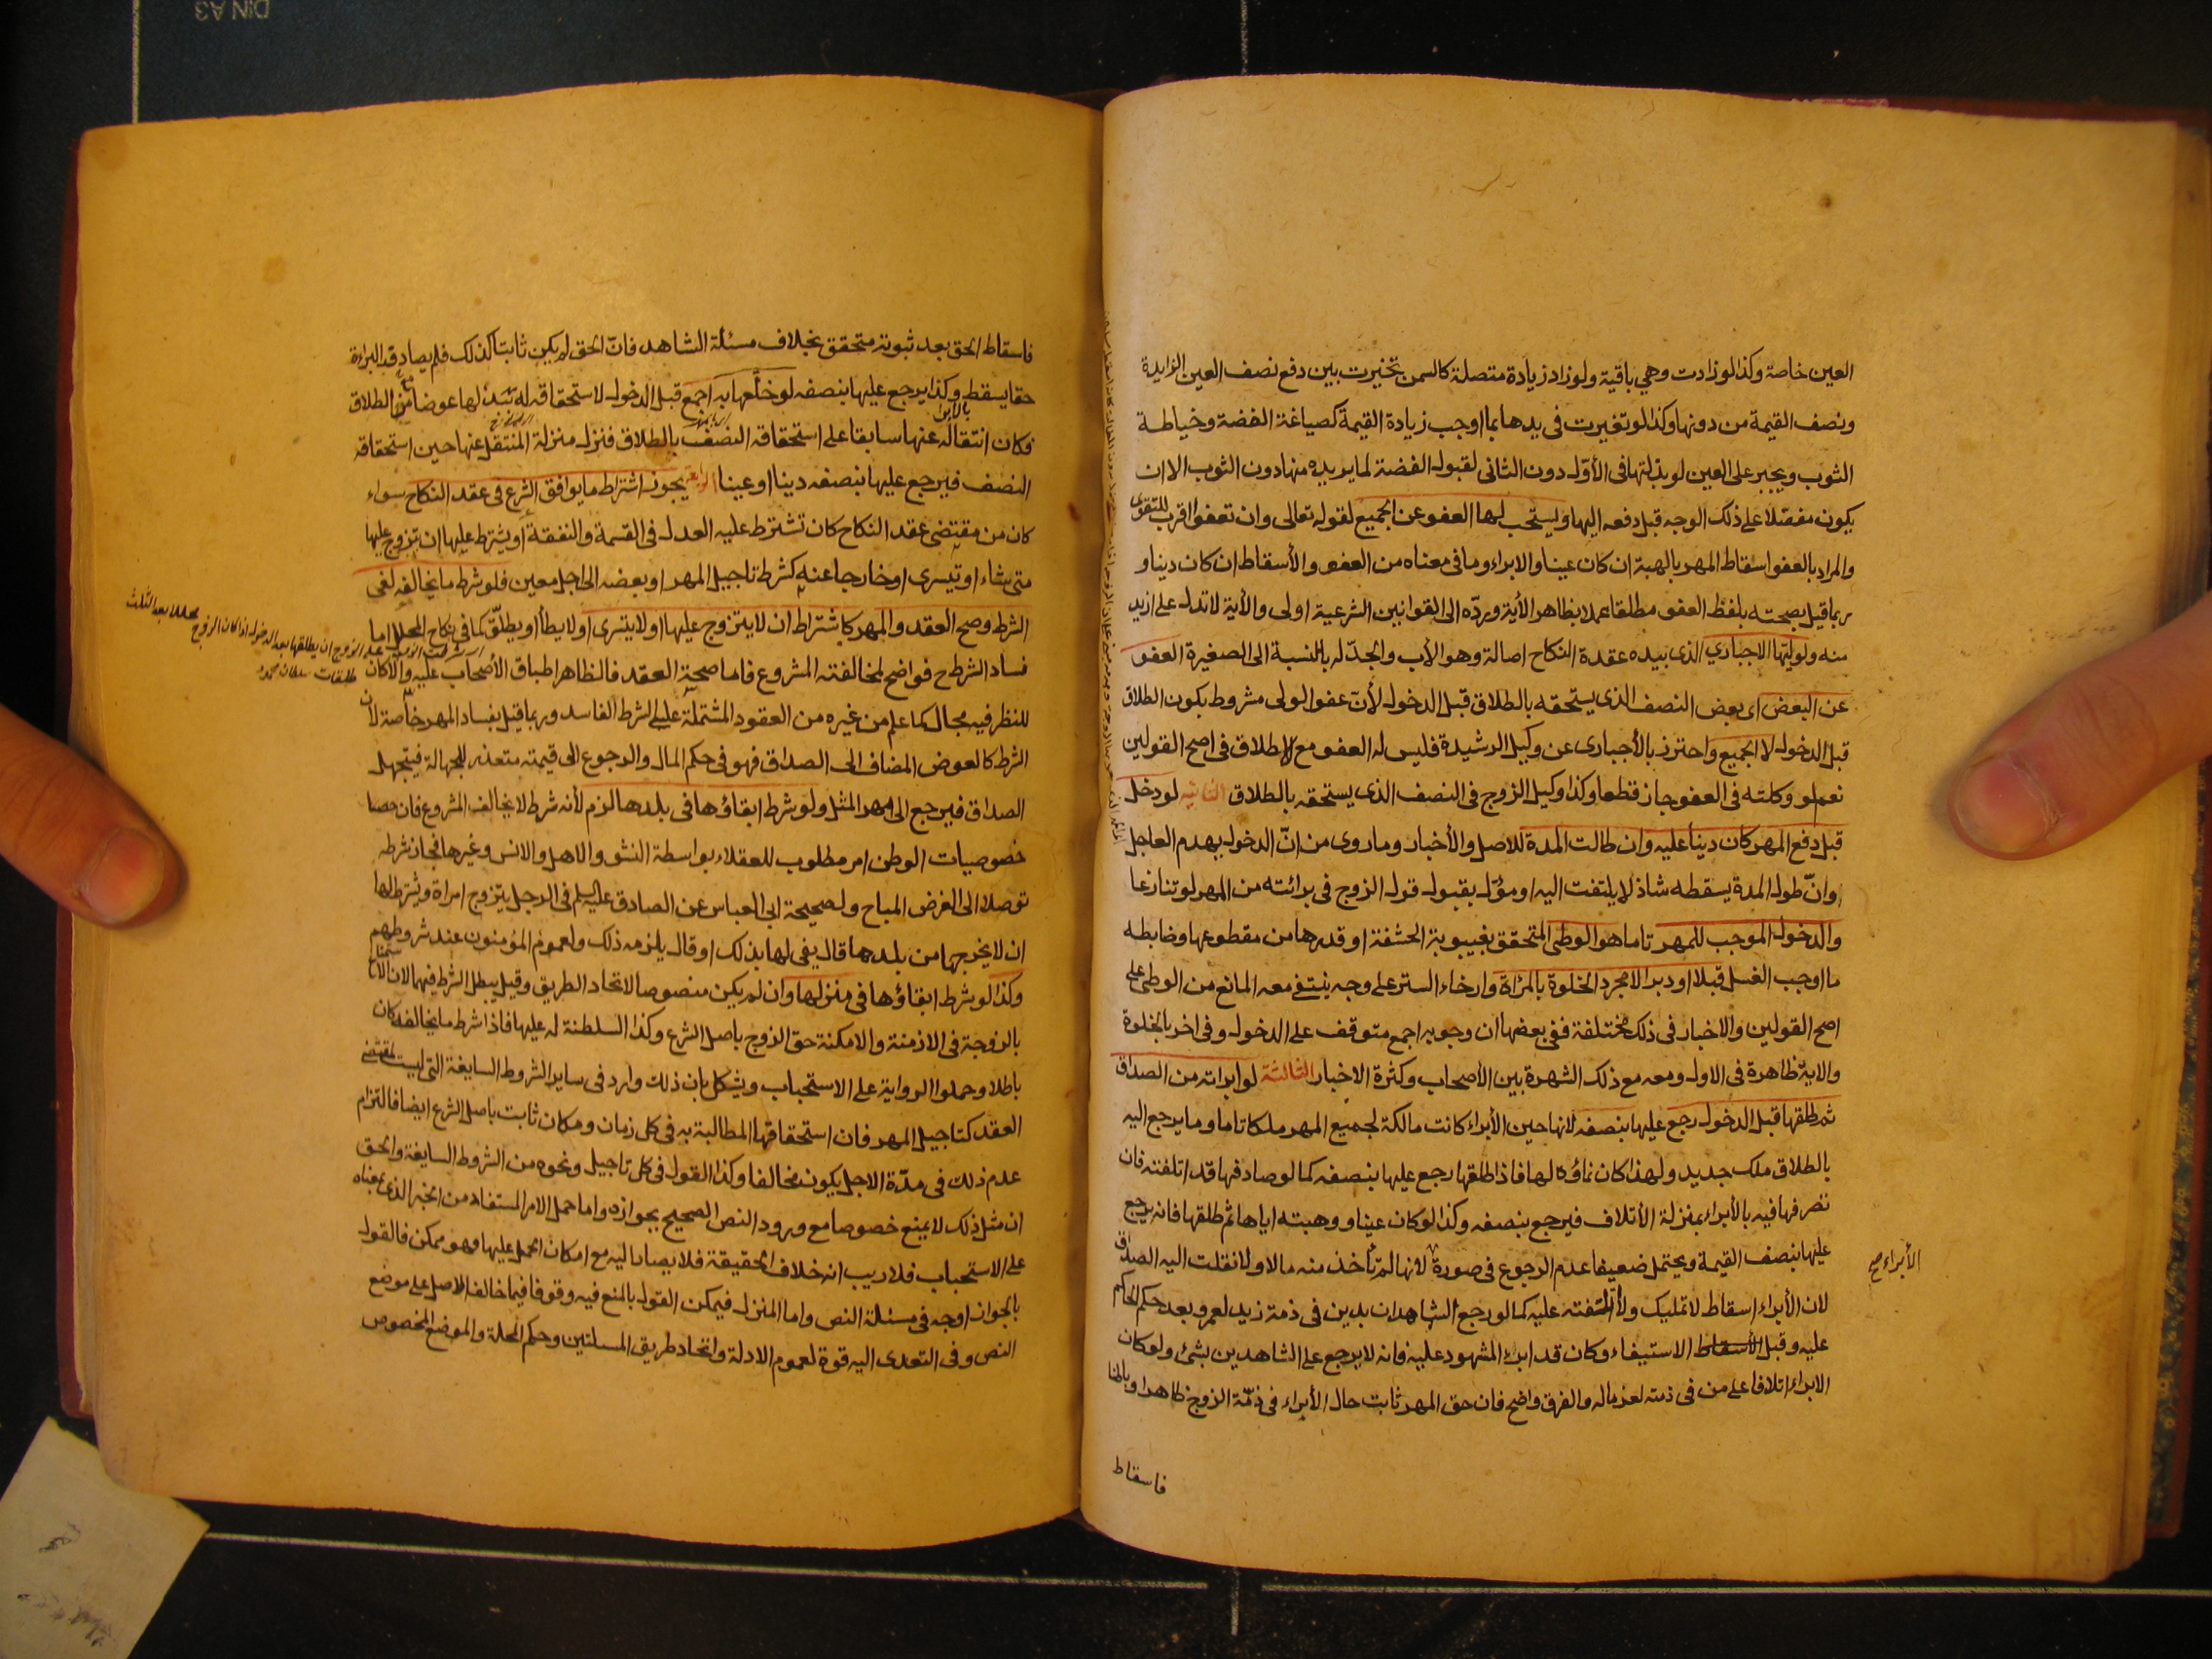 العين خاصة وكذا لو زادت وهي باقية ولو زاد زيادة متصلة كالسمن تخيرت بين دفع نصف العين الزايدة
ونصف القيمة من دونها وكذا لو تغيرت في يدها بما اوجب زيادة القيمة كصياغة الفضة وخياطة
الثوب ويجبر على العين لو بذلتها في الأول دون الثاني لقبول الفضة لما يريده منها دون الثوب الا ان
يكون مفصلا على ذلك الوجه قبل دفعه اليها ويستحب لها العفو عن الجميع لقوله تعالى وان تعفوا اقرب للتقوى
والمراد بالعفو اسقاط المهر بالهبة ان كان عينا والابراء وما في معناه من العفو والأسقاط ان كان دينا و
ربما قيل بصحته بلفظ العفو مطلقا عملا بظاهر الأية وردّه الى القوانين الشرعية اولى والأية لا تدل على ازيد
منه ولوليّها الاجباري الذي بيده عقدة النكاح اصالة وهو الأب والجدّ له بالنسبة الى الصغيرة العفو
عن البعض اى بعض النصف الذي يستحقه بالطلاق قبل الدخول لأنّ عفو الولى مشروط بكون الطلاق
قبل الدخول لا الجميع واحترز بالأجباري عن وكيل الرشيدة فليس له العفو مع الاطلاق في اصح القولين
نعم لو وكلته في العفو جاز قطعا وكذا وكيل الزوج في النصف الذي يستحقه بالطلاق الثانية لو دخل
قبل دفع المهر كان دينا عليه وان طالت المدة للاصل والأخبار وما روى من انّ الدخول يهدم العاجل
وانّ طول المدة يسقطه شاذ لا يلتفت اليه او مؤل بقبول قول الزوج في برائته من المهر لو تنازعا
والدخول الموجب للمهر تاما هو الوطى المتحقق بغيبوبة الحشفة او قدرها من مقطوعها وضابطه
ما اوجب الغسل قبلا او دبرا لا مجرد الخلوة بالمراة وارخاء الستر على وجه ينتفي معه المانع من الوطى على
اصح القولين والاخبار في ذلك مختلفة ففي بعضها ان وجوبه اجمع متوقف على الدخول وفي اخر بالخلوة
والاية ظاهرة في الاول ومعه مع ذلك الشهرة بين الأصحاب وكثرة الاخبار الثالثة لو ابراته من الصداق
ثم طلقها قبل الدخول رجع عليها بنصفه لانها حين الأبراء كانت مالكة لجميع المهر ملكا تاما وما يرجع اليه
بالطلاق ملك جديد ولهذا كان نماؤه لها فاذا طلقها رجع عليها بنصفه كما لو صادفها قد اتلفته فان
تصرفها فيه بالأبراء بمنزلة الأتلاف فيرجع بنصفه وكذا لو كان عينا ووهبته اياها ثم طلقها فانه يرجع
عليها بنصف القيمة ويحتمل ضعيفا عدم الرجوع في صورة لانها لم تأخذ منه مالا ولا نقلت اليه الصداق
الأبراء صح
لان الأبراء اسقاط لا تمليك ولا أتلفته عليه كما لو رجع الشاهدان بدين في ذمة زيد لعمرو بعد حكم الحاكم
عليه وقبل الاستيفاء وكان قد ابرء المشهود عليه فانه لا يرجع على الشاهدين بشئ ولو كان
الابراء اتلافا على من في ذمته لغرماله والفرق واضح فان حق المهر ثابت حال الأبراء في ذمّة الزوج ظاهرا وباطنا
فاسقاط
فاسقاط الحق بعد ثبوته متحقق بخلاف مسئلة الشاهد فانّ الحق لم يكن ثابتا كذلك فلم يصادق البراءة
حقا يسقط وكذا يرجع عليها بنصفه لو خلّعها به اجمع قبل الدخول لاستحقاقه له ببذلها عوضا عن الطلاق
فكان انتقاله عنها سابقا على استحقاقه النصف بالطلاق فنزل منزلة المنتقل عنها حين استحقاقه
النصف فيرجع عليها بنصفه دينا او عينا الرابعة يجوز اشتراط ما يوافق الشرع في عقد النكاح سواء
كان من مقتضى عقد النكاح كان تشترط عليه العدل في القسمة والنفقة او يشترط عليها ان يتزوج عليها
متى شاء او يتسرى او خارجا عنه كشرط تاجيل المهر او بعضه الى اجل معين فلو شرط ما يخالفه لغى
الشرط وصح العقد والمهر كاشتراط ان لا يتزوج عليها او لا يتسرى او لا يطأ او يطلّق كما في نكاح المحلل اما
فساد الشرط ح فواضح لمخالفته المشروع فاما صحة العقد فالظاهر اطباق الأصحاب عليه والا كان
للنظر فيه مجال كما علم من غيره من العقود المشتملة على الشرط الفاسد وربما قيل بفساد المهر خاصة لان
الشرط كالعوض المضاف الى الصداق فهو في حكم المال والرجوع الى قيمته متعذر للجهالة فيجهل
الصداق فيرجع الى مهر المثل ولو شرط ابقاؤها في بلدها لزم لأنه شرط لا يخالف المشروع فان
خصوصيات الوطن امر مطلوب للعقلاء بواسطة النشو والاهل والانس وغيرها فجاز شرطه
توصلا الى الغرض المباح ولصحيحة ابى العباس عن الصادق عليه السلم في الرجل يتزوج امراة ويشترط لها
ان لا يخرجها من بلدها قال يفى لها بذلك او قال يلزمه ذلك ولعموم المؤمنون عند شروطهم
وكذا لو شرط ابقاؤها في منزلها وان لم يكن منصوصا لاتحاد الطريق وقيل يبطل الشرط فيهما لان الاستمتاع
بالزوجة في الازمنة والامكنة حق الزوج باصل الشرع وكذا السلطنة له عليها فاذا شرط ما يخالفه كان
باطلا وحملوا الرواية على الاستحباب ويشكل بان ذلك وارد في ساير الشروط السايغة التى ليست بمقتضى
العقد كتاجيل المهر فان استحقاقها المطالبة به في كل زمان ومكان ثابت باصل الشرع ايضا فالتزام
عدم ذلك في مدّة الاجل يكون مخالفا وكذا القول في كل تاجيل ونحوه من الشروط السايغة والحق
ان مثل ذلك لا يمنع خصوصا مع ورود النص الصحيح بجوازه واما حمل الامر المستفاد من الخبر الذي بمعناه
على الاستحباب فلا ريب انه خلاف الحقيقة فلا يصار اليه مع امكان الحمل عليها وهو ممكن فالقول
بالجواز اوجه في مسئلة النص واما المنزل فيمكن القول بالمنع فيه وقوفا فيما خالف الاصل على موضع
النص وفي التعدى اليه قوة لعموم الادلة واتحاد طريق المسئلتين وحكم المحلة والموضع المخصوص